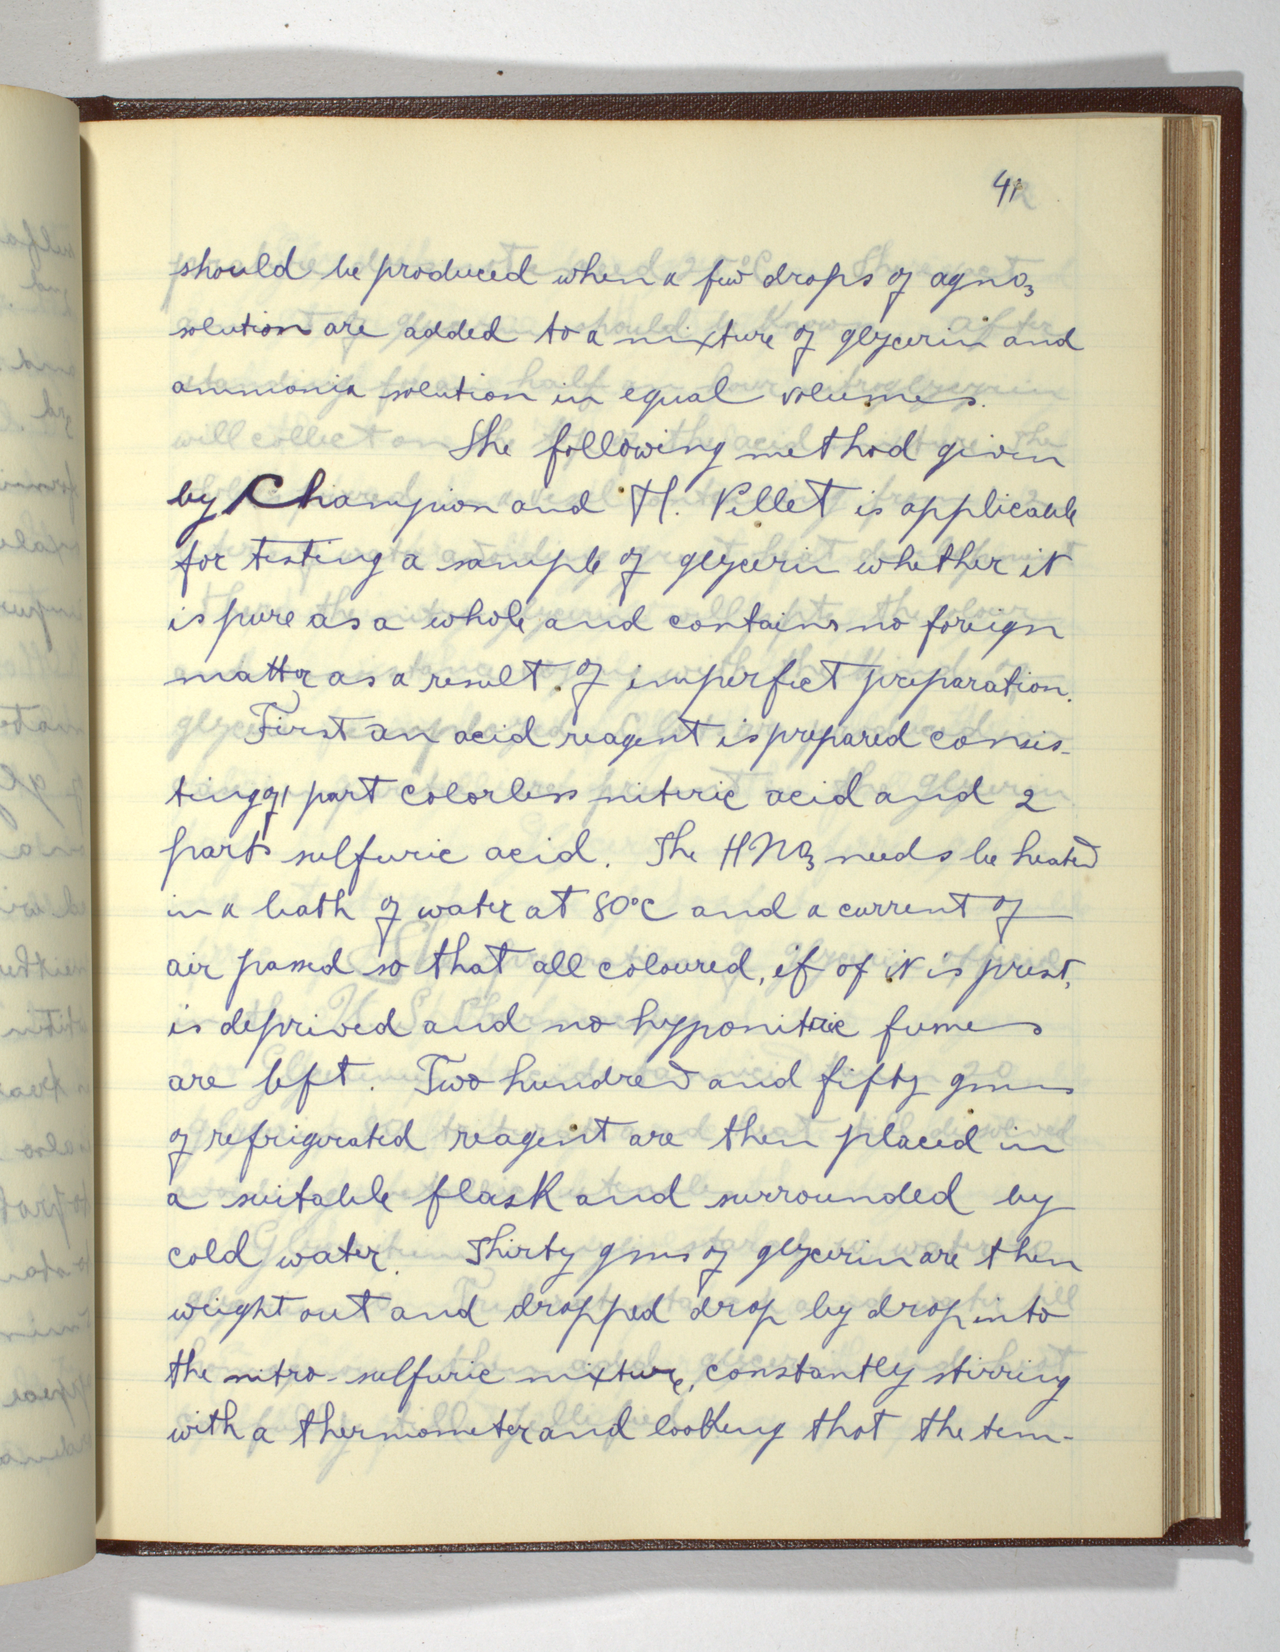 41
should be produced when a few drops of AgNO3
solution are added to a mixture of glycerin and
ammonia solution in equal volumes.
The following method given
by Champion and H. Pellet is applicable
for testing a sample of glycerin whether it
is pure as a whole and contains no foreign
matter as a result of imperfect preparation.
First an acid reagent is prepared consis-
ting of 1 part colorless nitric acid and 2
parts sulfuric acid. The HNO3 needs be heated
in a bath of water at 80°C and a current of
air passed so that all coloured, if of it is prest,
is deprived and no hyponitric fumes
are left. Two hundred and fifty gms
of refrigerated reagent are then placed in
a suitable flask and surrounded by
cold water. Thirty gms of glycerin are then
weight out and dropped drop by drop into
the nitro-sulfuric mixture, constantly stirring
with a thermometer and looking that the tem-